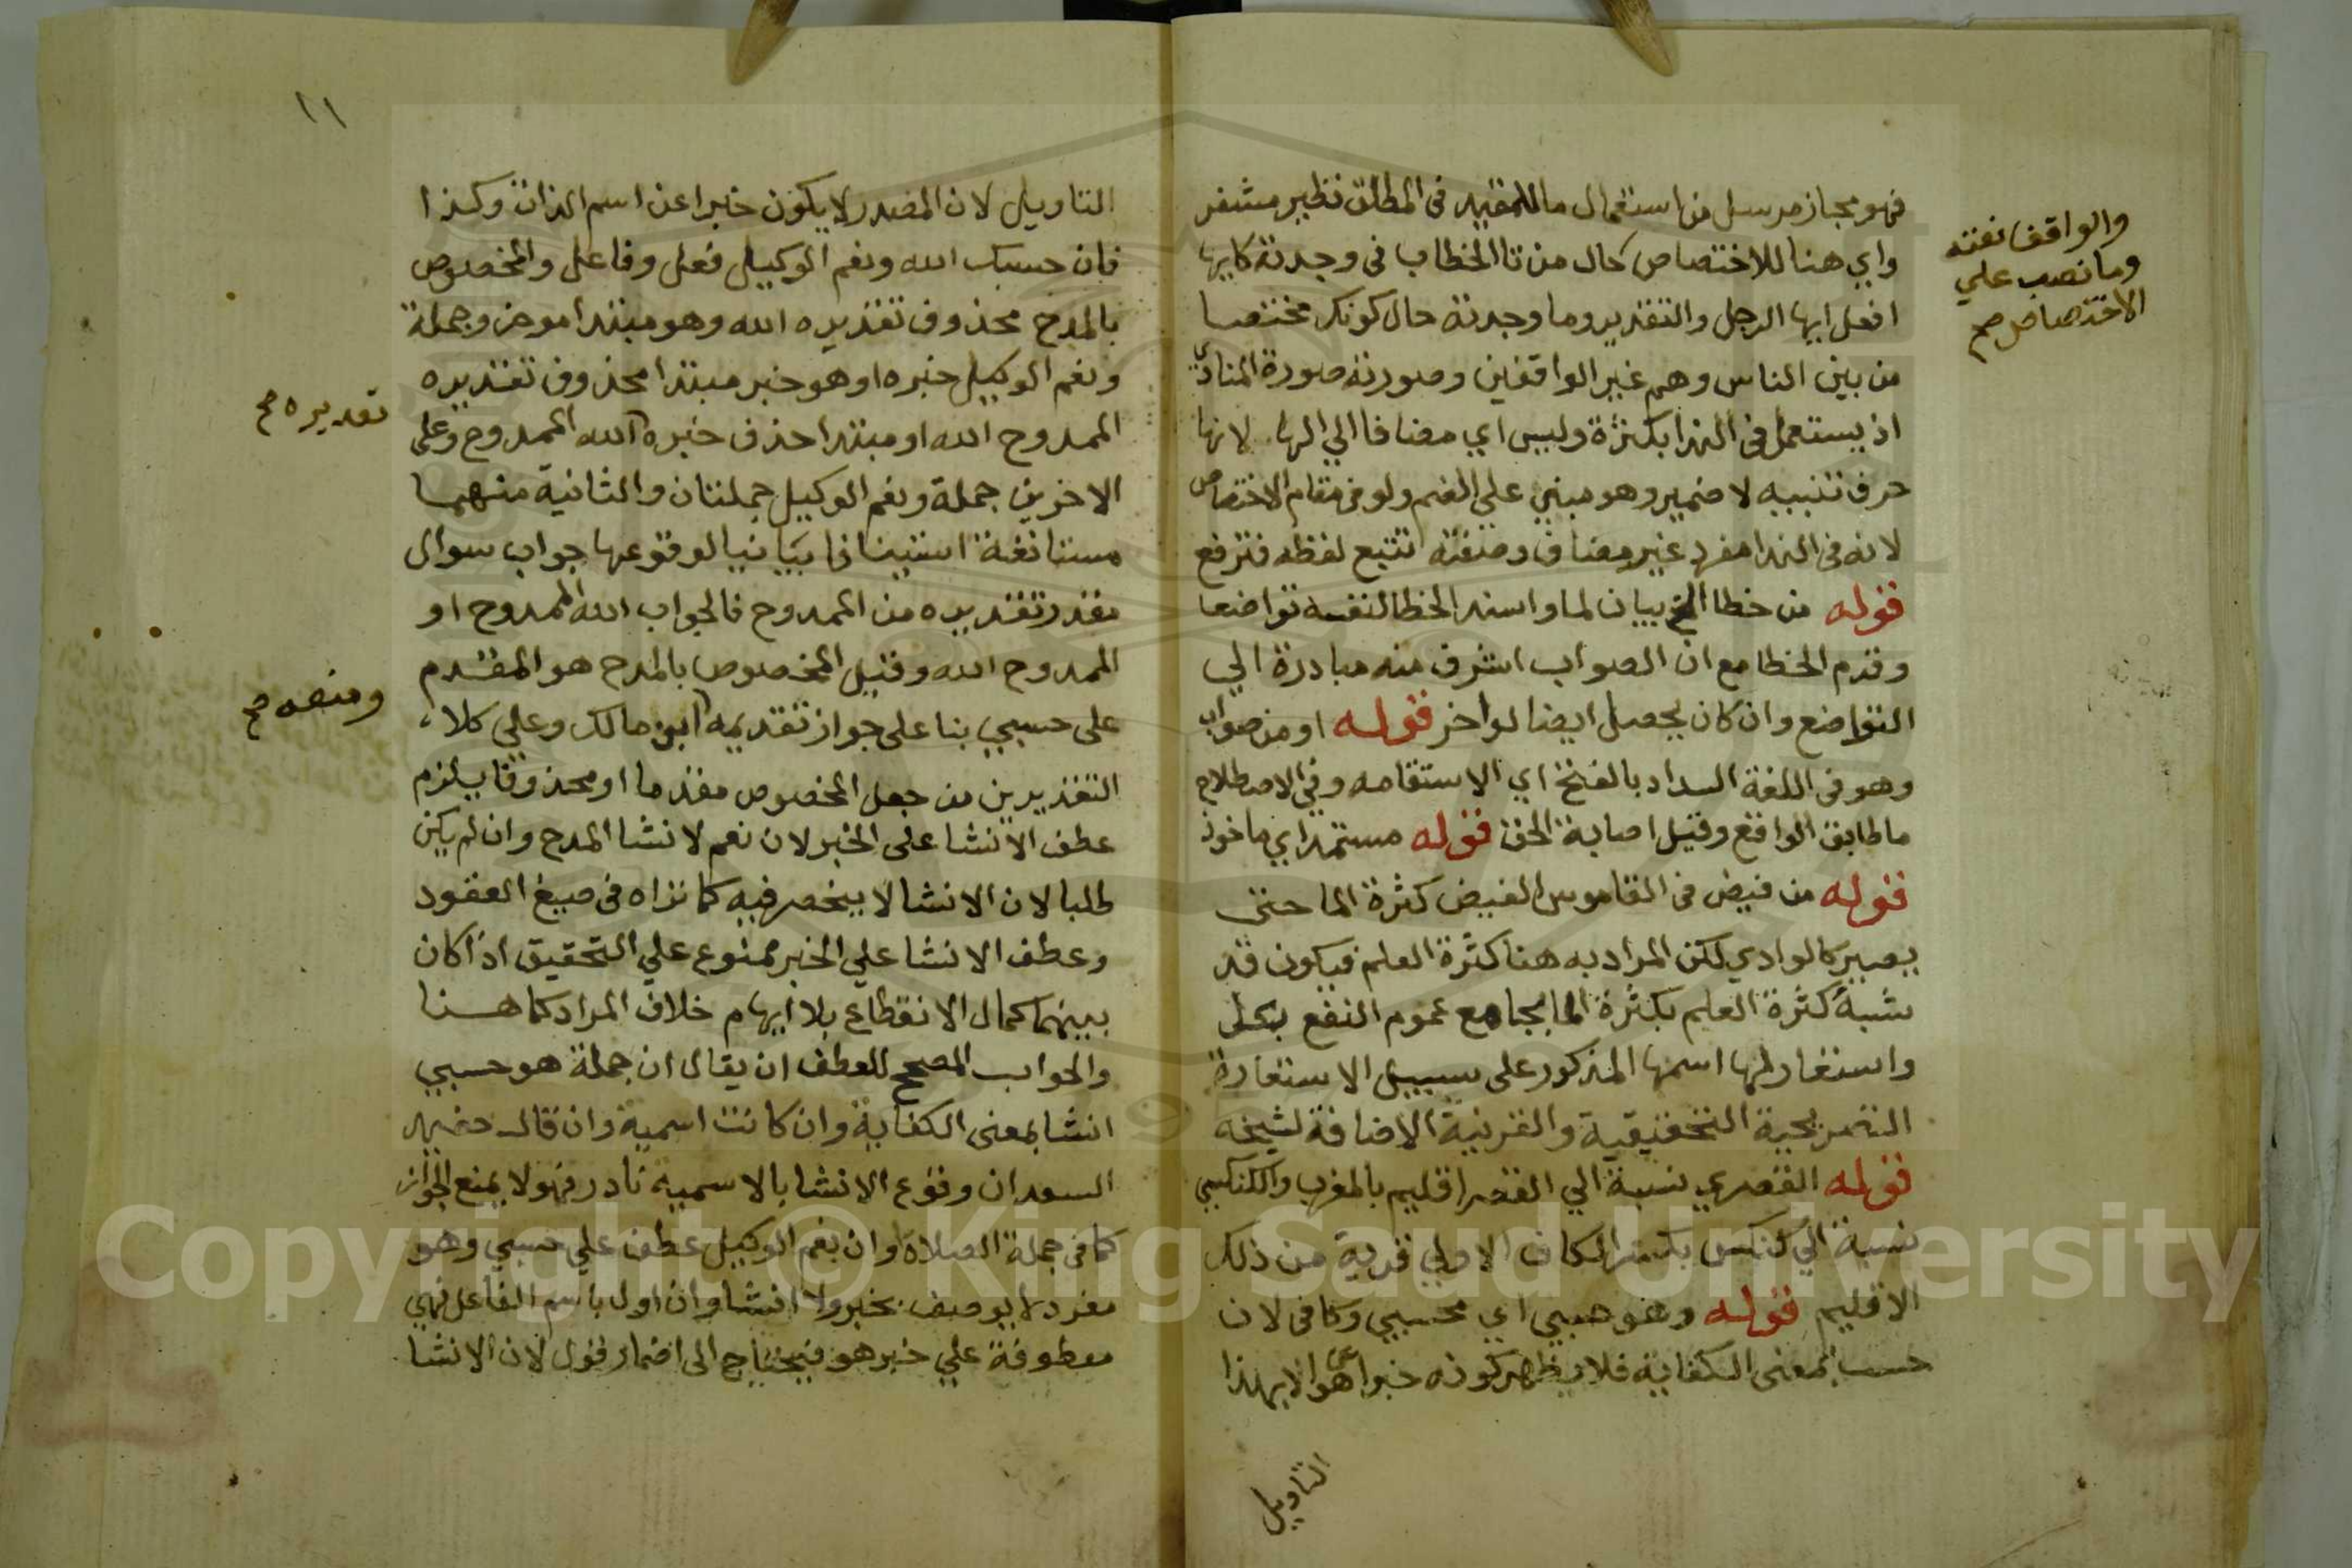 فهو مجاز مرسل من استعمال ما للمقيد في المطلق نظير مشفر
واي هنا للاختصاص حال من تا الخطاب في وجدته كايها
افعل ايها الرجل والتقدير وما وجدته حال كونك مختصا
من بين الناس وهم غير الواقفين وصورته صورة المنادي
اذ يستعمل في الندا بكثرة وليس اي مضافا الي الها لانها
حرف تنبيه لا ضمير وهو مبني علي الضم ولو في مقام الاختصاص
لانه في الندا مفرد غير مضاف وصفته تتبع لفظه فترفع
قوله من خطا الخ بيان لما واسند الخطا لنفسه تواضعا
وقدم الخطا مع ان الصواب اشرف منه مبادرة الي
التواضع وان كان يحصل ايضا لو اخر قوله او من صواب
وهو في اللغة السداد بالفتح اي الاستقامه وفي الاصطلاح
ما طابق الواقع وقيل اصابة الحق قوله مستمد اي ماخوذ
قوله من فيض في القاموس الفيض كثرة الما حتى
يصير كالوادي لكن المراد به هنا كثرة العلم فيكون قد
شبه كثرة العلم بكثرة الما بجامع عموم النفع بكل
واستعار لها اسمها المذكور على سبيل الاستعارة
التصريحية التحقيقية والقرينة الاضافة لشيخه
قوله القصري نسبة الي القصر اقليم بالمغرب والكنكسي
نسبة الي كنكس بكسر الكاف الاولي قرية من ذلك
الاقليم قوله وهو حسبي اي محسبي وكافي لان
حسب بمعنى الكفاية فلا يظهر كونه خبرا عن هو الا بهذا
التاويل
والواقف نعته
وما نصب علي
الاختصاص صح
١١
التاويل لان المصدر لا يكون خبرا عن اسم الذات وكذا
فان حسبك الله ونعم الوكيل فعل وفاعل والمخصوص
بالمدح محذوف تقديره الله وهو مبتدا موخر وجملة
ونعم الوكيل خبره او هو خبر مبتدا محذوف تقديره
الممدوح الله او مبتدا حذف خبره الله الممدوح وعلى
الاخرين جملة ونعم الوكيل جملتان والثانية منهما
مستانفة استينافا بيانيا لوقوعها جواب سوال
مقدر تقديره من الممدوح فالجواب الله الممدوح او
الممدوح الله وقيل المخصوص بالمدح هو المقدم
على حسبي بنا على جواز تقديمه ابن مالك وعلي كلا
التقديرين من جعل المخصوص مقدما او محذوفا يلزم
عطف الانشا على الخبر لان نعم لانشا المدح وان لم يكن
طلبا لان الانشا لا ينحصر فيه كما نراه في صيغ العقود
وعطف الانشا علي الخبر ممنوع علي التحقيق اذا كان
بينهما كمال الانقطاع بلا ايهام خلاف المراد كما هنا
والجواب المصحح للعطف ان يقال ان جملة هو حسبي
انشا بمعنى الكفاية وان كانت اسمية وان قال حفيد
السعد ان وقوع الانشا بالاسمية نادر فهو لا يمنع الجواز
كما في جملة الصلاة او ان نعم الوكيل عطف علي حسبي وهو
مفرد لا يوصف بخبر ولا انشا وان اول باسم الفاعل فهي
معطوفة علي خبر هو فيحتاج الى اضمار قول لان الانشا
تقديره صح
ومنعه صح
Copyright © King Saud University